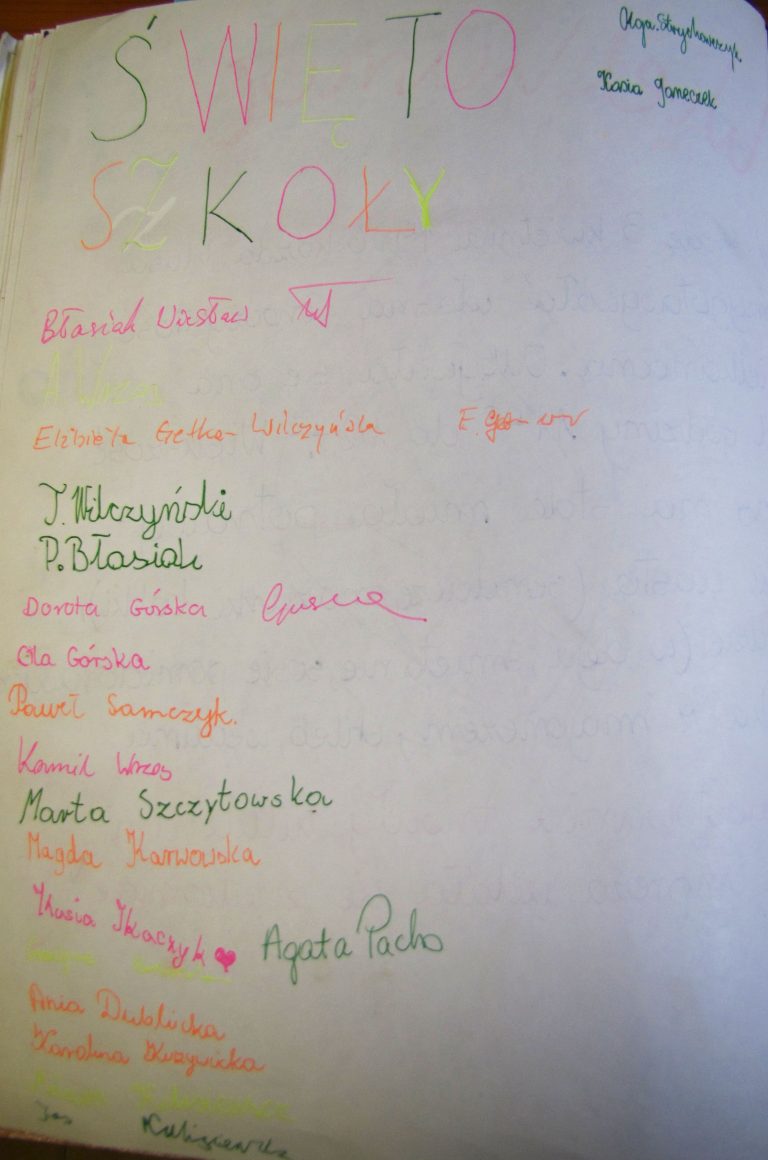 ŚWIĘTO
SZKOŁY
Kasia Janeczek
Błasiak Wiesław
A. Wrzos
Elżbieta Getka-Wilczyńska
J. Wilczyński
P. Błasiak
Dorota Górska
Ola Górska
Paweł Samczyk.
Kamil Wrzos
Marta Szczytowska
Magda Karwowska
Kasia Tkaczyk
Agata Pacho
Ania Dublicka
Karolina